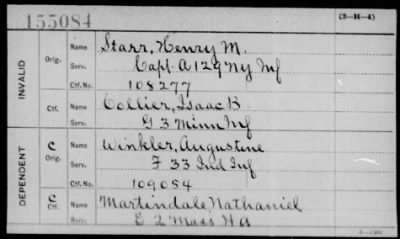 155084
(3-H-4)
INVALID
Orig. Name Starr, Henry M.
Serv. Capt. A 129 Ny Inf
Ctf. No. 108277
Ctf. Name Collier, Isaac B.
G 3 Minn Inf
DEPENDENT
C Orig. Name Winkler, Augustine
Serv. F 33 Ind Inf
Ctf. No. 109054
C Ctf. Name Martindale Nathaniel
Serv. E 2 Mass HA